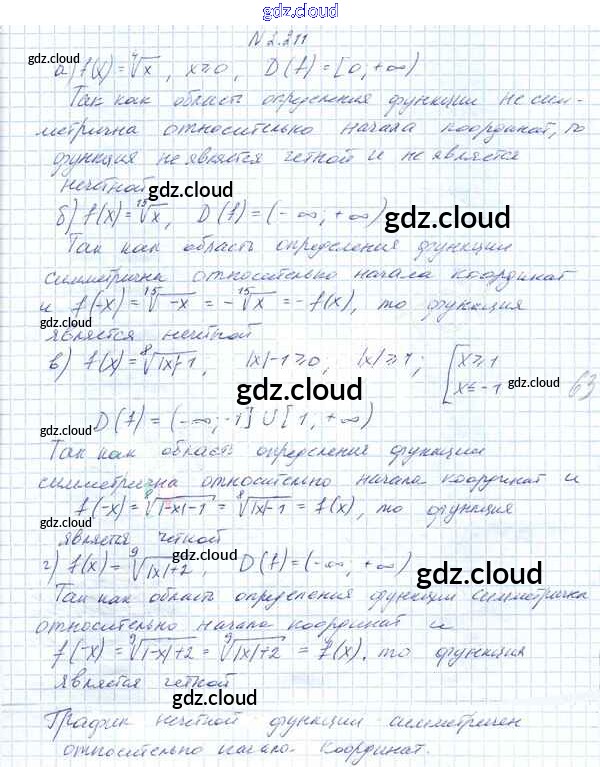 gdz.cloud
N 2.211
а) f(x) = ⁴√x, x≥0, D(f) = [0; +∞)
gdz.cloud gdz.cloud
Так как область определения функции не сим-
метрична относительно начала координат, то
функция не является четной и не является
нечетной
gdz.cloud
б) f(x) = ¹⁵√x, D(f) = (-∞; +∞)
gdz.cloud gdz.cloud
Так как область определения функции
симметрична относительно начала координат
и f(-x) = ¹⁵√-x = -¹⁵√x = -f(x), то функция
является нечетной
в) f(x) = ⁸√|x|-1, |x|-1≥0, |x|≥1; [x≥1
x≤-1
gdz.cloud gdz.cloud 63
gdz.cloud
D(f) = (-∞; -1] ∪ [1; +∞)
gdz.cloud
Так как область определения функции
симметрична относительно начала координат и
f(-x) = ⁸√|-x|-1 = ⁸√|x|-1 = f(x), то функция
gdz.cloud
является четной
gdz.cloud
г) f(x) = ⁹√|x|+2, D(f) = (-∞; +∞)
gdz.cloud
Так как область определения функции симметрична
относительно начала координат и
f(-x) = ⁹√|-x|+2 = ⁹√|x|+2 = f(x), то функция
gdz.cloud
является четной
gdz.cloud
График нечетной функции симметричен
относительно начала координат.
gdz.cloud gdz.cloud